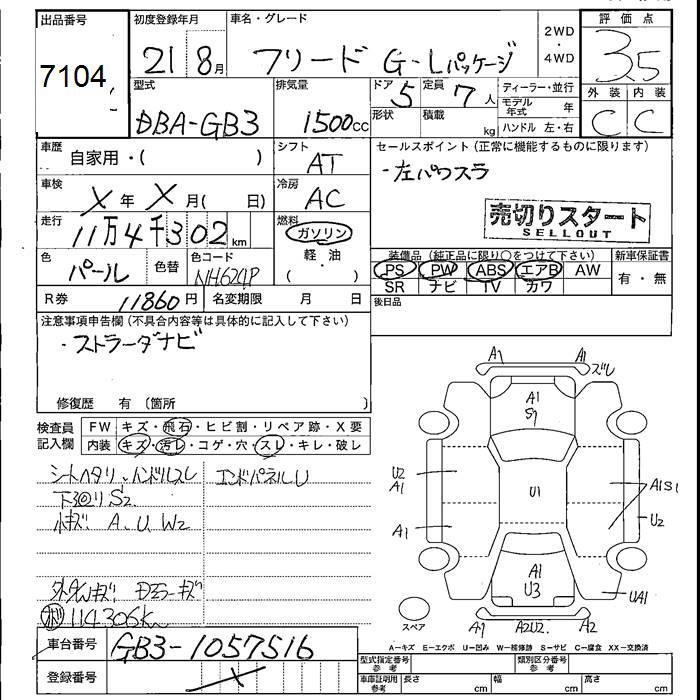 出品番号 初度登録年月 車名・グレード 2WD・4WD 評価点
7104 21 8月 フリード G-Lパッケージ 3.5
型式 排気量 ドア 5 定員 7人 ディーラー・並行 外装 内装
DBA-GB3 1500cc 形状 積載 kg モデル年式 年 C C
ハンドル 左・右
車歴 自家用・( ) シフト AT セールスポイント(正常に機能するものに限ります)
・左パワスラ
車検 X年 X月( 日) 冷房 AC
売切りスタート
SELLOUT
走行 11万4千302km 燃料 ガソリン 軽油 ( )
装備品(純正品に限り○をつけて下さい) 新車保証書
PS PW ABS エアB AW 有・無
SR ナビ TV カワ
色 パール 色替 色コード NH624P
後日品
R券 11860円 名変期限 月 日
注意事項申告欄(不具合内容等は具体的に記入して下さい)
・ストラーダナビ
修復歴 有(箇所
検査員記入欄 FW キズ・飛石・ヒビ割・リペア跡・X要
内装 キズ・汚レ・コゲ・穴・スレ・キレ・破レ
シートヘタリ、ハンドルスレ エンドパネルU
下回りS2
小キズ A、U、W2
114306km
車台番号 GB3-1057516
登録番号 X
A1 A1 ズレ
A1
S1
U2
A1
U1
A1S1
A1
U2
A1
U3
UA1
スペア
A1 A2U2. A2
A―キズ E―エクボ U―凹み W―補修跡 S―サビ C―腐食 XX―交換済
型式指定番号 参考 類別区分番号 参考
車庫証明用 参考 長さ cm 幅 cm 高さ cm